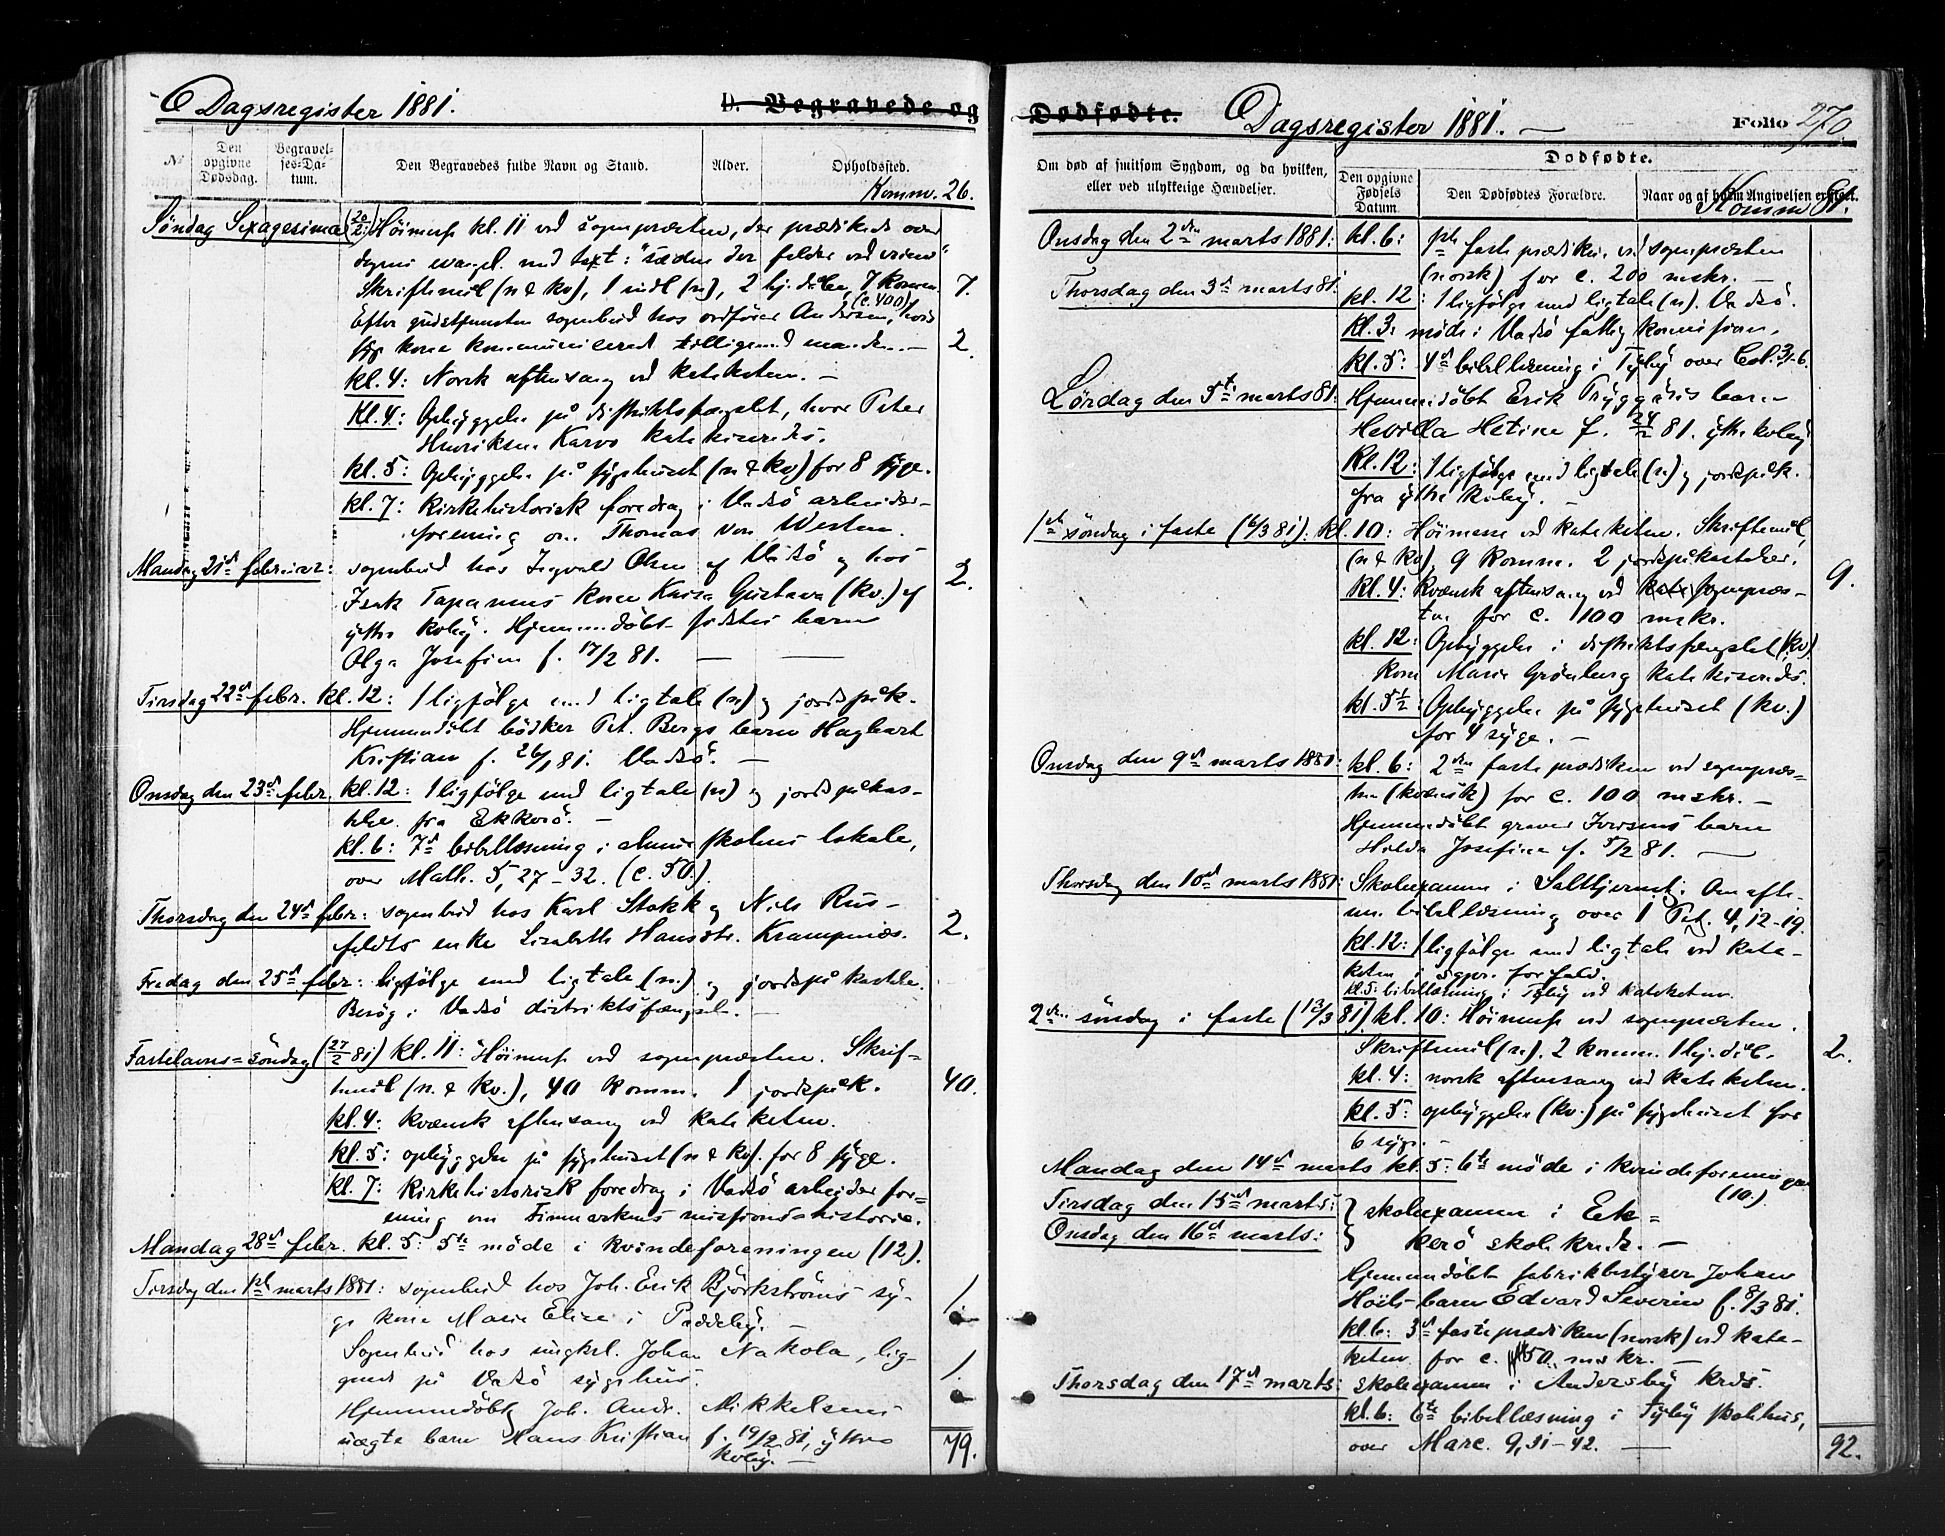 Dagsregister 1881.
D. Begravede og
№
Den opgivne Dødsdag.
Begravelses-Datum.
Den Begravedes fulde Navn og Stand.
Alder.
Opholdssted.
Komm. 26.
Søndag Sexagesima (20/2) Høimesse kl. 11 ved sognepræsten, der prædikede over
dagens evangel. med text: "sæden der falder ved veien"
Skriftemål (n & kv), 1 indl (n), 2 hj. døbte, 7 komm. 7.
(c. 400)
Efter gudstjenesten sognebud hos ordfører Andersen, hvis
syge kone kommunicerede tilligemed manden. — 2.
kl. 4: Norsk aftensang ved kateketen. —
Kl. 4: Opbyggelse på distriktsfængslet, hvor Peter
Henriksen Karvo katekiseredes.
kl. 5: Opbyggelse på sygehuset (n & kv) for 8 syge.
kl. 7: Kirkehistorisk foredrag i Vadsö arbeider-
forening om Thomas von Westen.
Mandag 21de februar: sognebud hos Ingvald Olsen af Vadsö og hos 2.
Isak Tapanis kone Kaisa Gustava (kv.) af
ytre kvby. Hjemmedöbt barn
Olga Josefine f. 17/2 81. — —
Tirsdag 22de febr. kl. 12: 1 ligfölge med ligtale (n) og jordspåk.
Hjemmedöbt bödker Pet. Bergs barn Hagbart
Kristian f. 26/1 81. Vadsö. —
Onsdag den 23de febr. kl. 12: 1 ligfölge med ligtale (n) og jordspåkas-
telse fra Ekkerö. —
kl. 6: 7de bibellæsning i almueskolens lokale,
over Math. 5, 27-32. (c. 50).
Thorsdag den 24de febr: sognebud hos Karl Stokk og Nils Rus- 2.
feldts enke Lisabeth Hansdtr. Krampenæs.
Fredag den 25de febr: ligfölge med ligtale (n.) og jordspåkastelse.
Besög i Vadsö distriktsfængsel. —
Fastelavns-söndag (27/2 81) kl. 11: Höimesse ved sognepræsten. Skrif-
temål (n. & kv.), 40 komm. 1 jordspåk. 40.
kl. 4: kvænsk aftensang ved kateketen.
kl. 5: opbyggelse på sygehuset (n & kv). for 8 syge.
kl. 7: Kirkehistorisk foredrag i Vadsö arbejderfor-
ening om Finmarkens missionshistorie.
Mandag 28de febr. kl. 5: 5te möde i kvindeforeningen (12).
Tirsdag den 1ste marts 1881: sognebud hos Joh. Erik Björkströms sy- 1.
ge kone Marie Elise i Paddeby. —
Sognebud hos ungkrl. Johan Nakola, lig- 1.
gende på Vadsö sygehus.
Hjemmedöbt Joh. Andr. Mikkelsens
uægte barn Hans Kristian f. 19/2 81, ytre
kvby. —
79.
Dødfødte.
Dagsregister 1881. —
Folio 270
Om død af smitsom Sygdom, og da hvilken, eller ved ulykkelige Hændelser.
Dødfødte.
Den opgivne Fødsels Datum.
Den Dødfødtes Forældre.
Naar og af hvem Angivelsen er skeet.
Komm 81.
Onsdag den 2den marts 1881: kl. 6: 1ste fasteprædiken ved sognepræsten
(norsk) for c. 200 mskr. —
Thorsdag den 3de marts 81: kl. 12: 1 ligfölge med ligtale (n). Vadsö.
kl. 3: möde i Vadsö fattigkomission.
kl. 5: 4de bibellæsning i Tyby over Col. 3, 1-6.
Lördag den 5te marts 81: Hjemmedöbt Erik barn
Hetine f. 24/2 81. ytre kvby
Kl. 12: 1 ligfölge med ligtale (n) og jordspåk.
fra ytre kvby. —
1ste söndag i faste (6/3 81): kl. 10: Höimesse ved kateketen. Skriftemål
(n & kv), 9 komm. 2 jordspåkastelser. 9.
kl. 4: Kvænsk aftensang ved sognepræs-
ten for c. 100 mskr.
kl. 12: Opbyggelse i distriktsfængslet (kv)
Marie Grönberg katekiseredes.
kl. 5½: Opbyggelse på sygehuset (kv.)
for 4 syge. —
Onsdag den 9de marts 1881: kl. 6: 2den fasteprædiken ved sognepræs-
ten (kvænsk) for c. 100 mskr. —
Hjemmedöbt graver Iversens barn
Hilda Josefine f. 5/2 81. —
Thorsdag den 10de marts 1881: Skoleexamen i Salttjernet: Om afte-
nen bibellæsning over 1 Pet. 4, 12-19.
kl. 12: 1 ligfölge med ligtale ved kate-
keten i sgpr. forfald.
kl. 5: bibellæsning i Tyby ved kateketen.
2den söndag i faste (13/3 81) kl. 10: Höimesse ved sognepræsten.
Skriftemål (n). 2 komm. 1 hj. döbt. 2.
kl. 4: norsk aftensang ved kateketen.
kl. 5: opbyggelse (kv.) på sygehuset for
6 syge. —
Mandag den 14de marts kl. 5: 6te möde i kvindeforeningen
(10.)
Tirsdag den 15de marts: } skoleexamen i Ek-
Onsdag den 16de marts: } kerö skolekreds. —
Hjemmedöbt fabrikbestyrer Johan
barn Edvard Severin f. 8/3 81.
kl. 6: 3de fasteprædiken (norsk) ved kate-
keten for c. 150 mskr. —
Thorsdag den 17de marts: skoleexamen i Andersby krds.
kl. 6: 6te bibellæsning i Tyby skolehus,
over Marc. 9, 31-42. —
92.